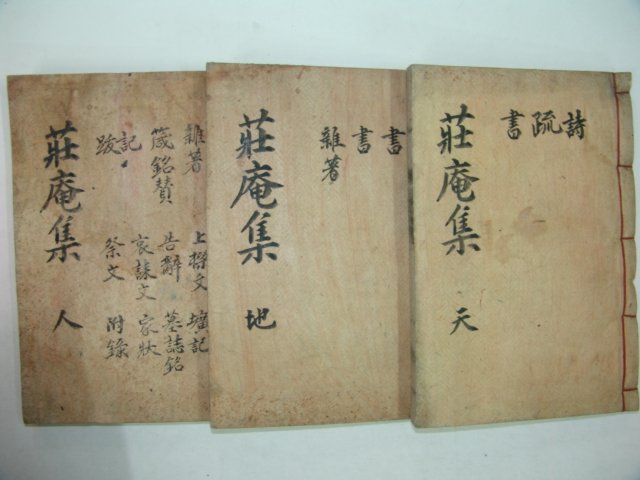 詩
疏
書
莊庵集 天
書
書
雜著
莊庵集 地
雜著 上樑文 壙記
箴銘贊 告辭 墓誌銘
記 哀誄文 家狀
跋 祭文 附錄
莊庵集 人